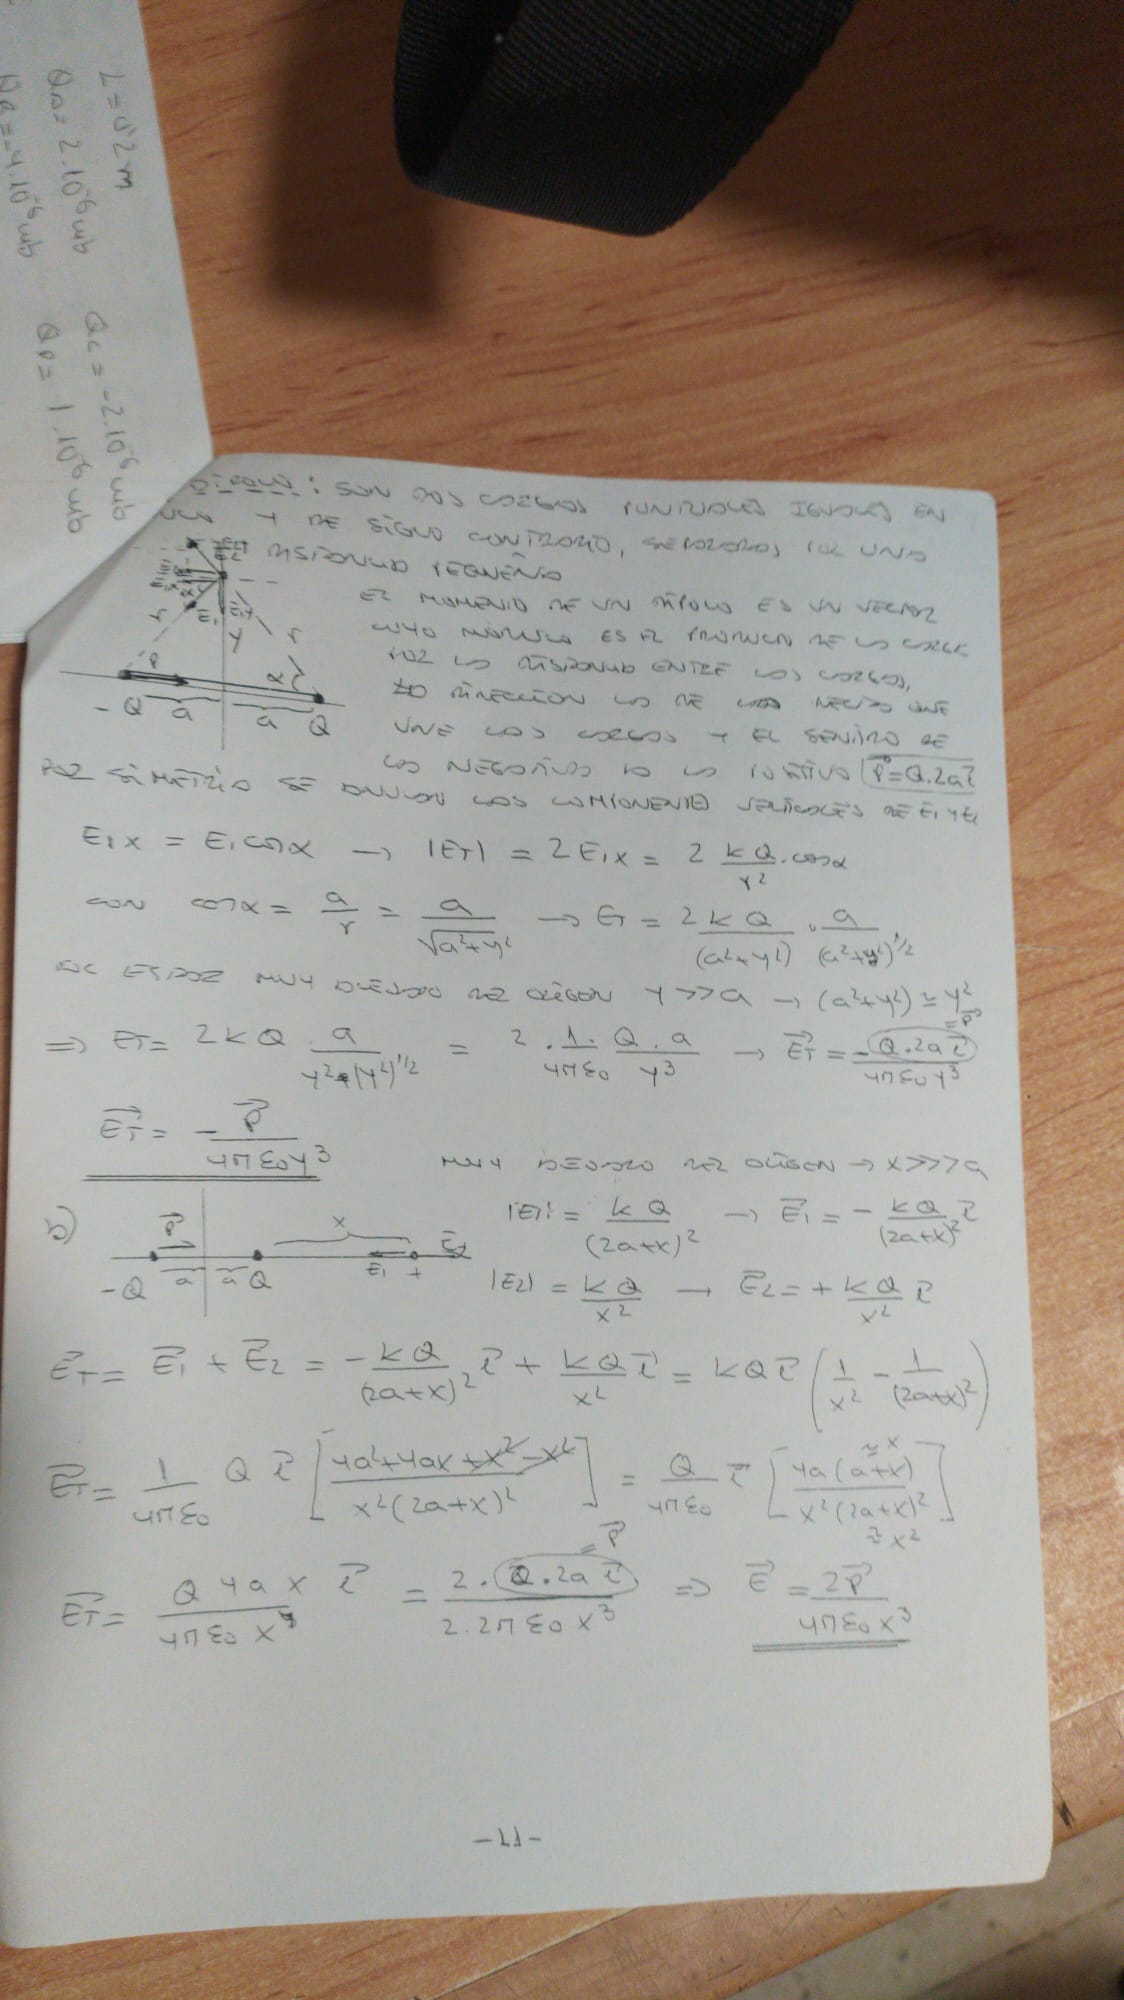 L = 0'2 m
QA = 2·10⁻⁶ culb
QB = -4·10⁻⁶ culb
QC = -2·10⁻⁶ culb
QD = 1·10⁻⁶ culb
DIPOLO: SON DOS CARGAS PUNTUALES IGUALES EN
Y DE SIGNO CONTRARIO, SEPARADAS POR UNA
DISTANCIA PEQUEÑA
EL MOMENTO DE UN DIPOLO ES UN VECTOR
CUYO MÓDULO ES EL PRODUCTO DE LA CARGA
POR LA DISTANCIA ENTRE LAS CARGAS,
DIRECCIÓN LA DE LA RECTA QUE
UNE LAS CARGAS Y EL SENTIDO DE
LA NEGATIVA A LA POSITIVA P⃗ = Q·2a i⃗
r E₁ E₁y y r
P⃗ α
-Q a a Q
POR SIMETRÍA SE ANULAN LAS COMPONENTES VERTICALES DE E₁ Y E₂
E₁x = E₁ cosα → |ET| = 2E₁x = 2 kQ/r² · cosα
CON cosα = a/r = a/√(a²+y²) → ET = 2kQ/(a²+y²) · a/(a²+y²)^1/2
ESTAR MUY ALEJADO DEL ORIGEN y>>a → (a²+y²) ≃ y²
⇒ ET = 2kQ a/(y²·(y²)^1/2) = 2·1·Q·a/(4πε₀ y³) → E⃗T = -Q·2a i⃗/(4πε₀y³) = P⃗
E⃗T = -P⃗/(4πε₀y³)
MUY ALEJADO DEL ORIGEN → x>>>a
b) P⃗ x E⃗₂
-Q a a Q E₁ +
|E₁| = kQ/(2a+x)² → E⃗₁ = -kQ/(2a+x)² i⃗
|E₂| = kQ/x² → E⃗₂ = +kQ/x² i⃗
E⃗T = E⃗₁ + E⃗₂ = -kQ/(2a+x)² i⃗ + kQ/x² i⃗ = kQ i⃗ (1/x² - 1/(2a+x)²)
E⃗T = 1/(4πε₀) Q i⃗ [(4a²+4ax+x²-x²)/(x²(2a+x)²)] = Q/(4πε₀) i⃗ [4a(a+x)/(x²(2a+x)²)] ≈x ≈x²
E⃗T = Q 4a x i⃗/(4πε₀ x⁴) = 2·Q·2a i⃗/(2·2πε₀x³) = P⃗ ⇒ E⃗ = 2P⃗/(4πε₀x³)
-11-